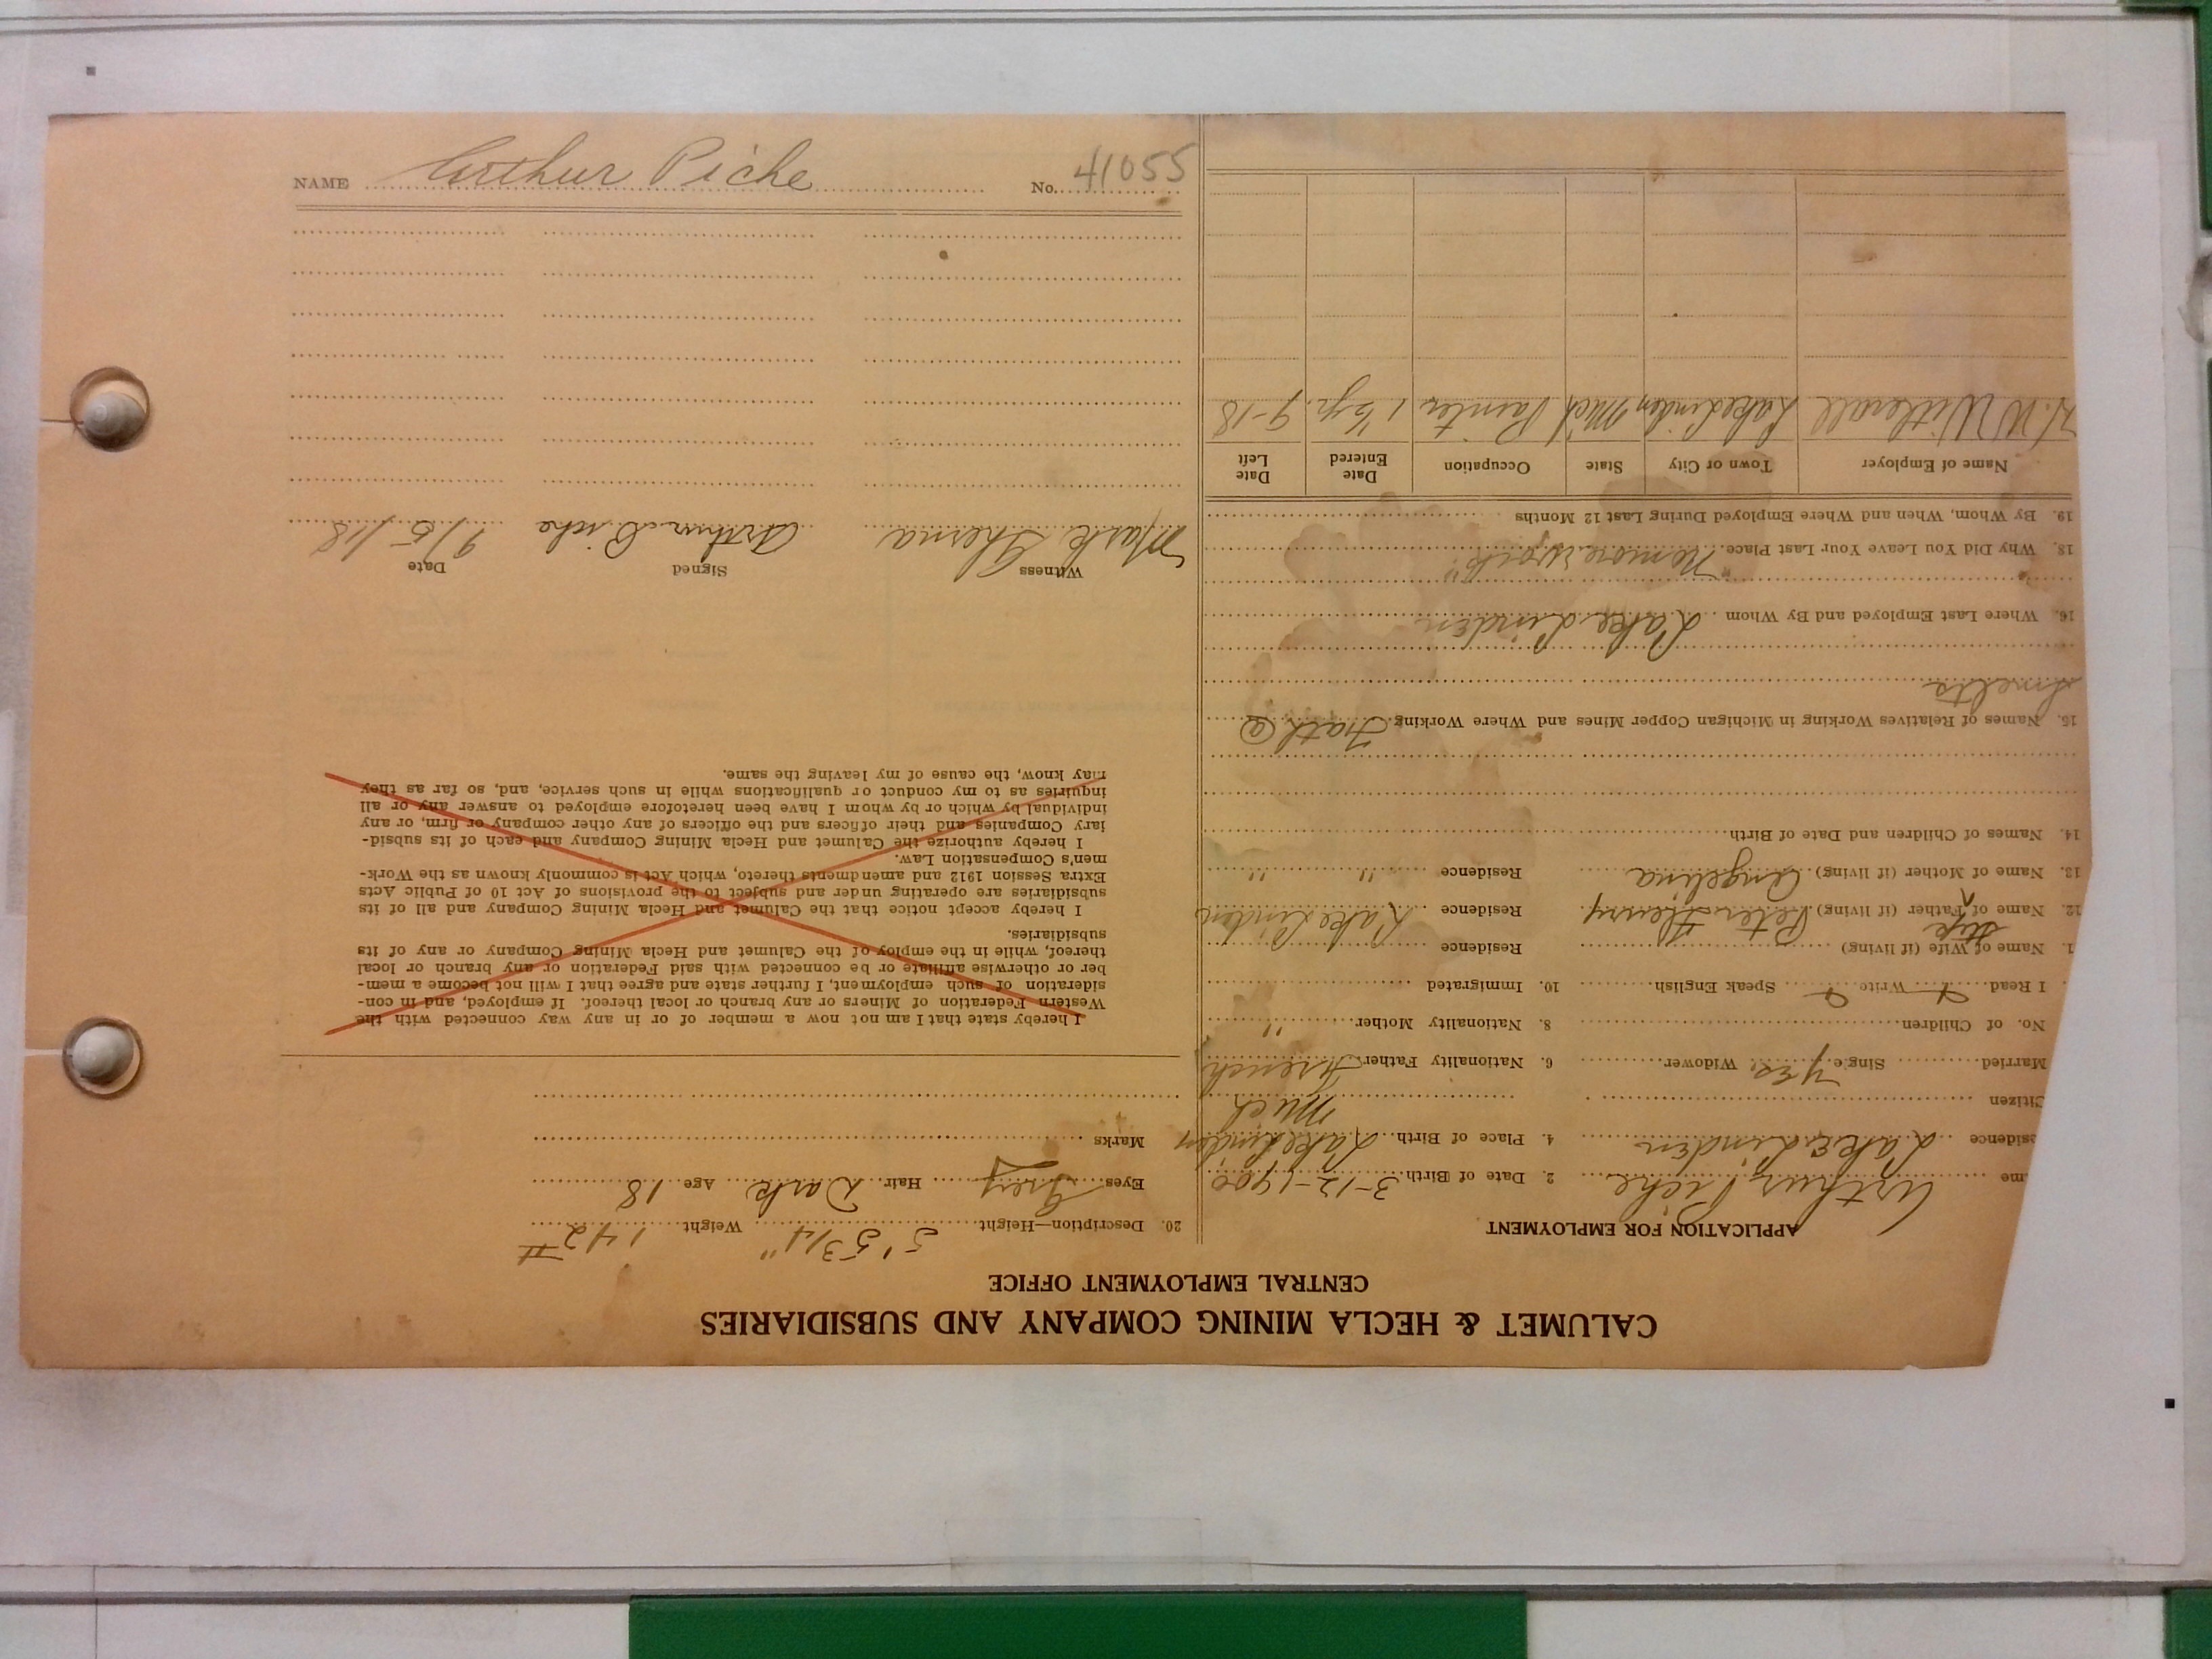 NAME Arthur Piche No. 41055
CALUMET & HECLA MINING COMPANY AND SUBSIDIARIES
CENTRAL EMPLOYMENT OFFICE
APPLICATION FOR EMPLOYMENT
me Arthur Piche 2. Date of Birth 3-12-1900
sidence Lake Linden 4. Place of Birth Lake Linden
Mich
Citizen
Married Single Yes. Widower 6. Nationality Father French
No. of Children 8. Nationality Mother " "
I Read Write Speak English 10. Immigrated
1. Name of Wife (if living) Residence
step
12. Name of ^ Father (if living) Peter Henry Residence Lake Linden
13. Name of Mother (if living) Angelina Residence " "
14. Names of Children and Date of Birth
15. Names of Relatives Working in Michigan Copper Mines and Where Working Fath @
Smelts
16. Where Last Employed and By Whom Lake Linden
18. Why Did You Leave Your Last Place "No more work"
19. By Whom, When and Where Employed During Last 12 Months
Name of Employer Town or City State Occupation Date Entered Date Left
H. W. Lake Linden Mich Painter 1 ½ yr. 9-18
20. Description—Height 5' 5 3/4" Weight 142 #
Eyes Grey Hair Dark Age 18
Marks
I hereby state that I am not now a member of or in any way connected with the
Western Federation of Miners or any branch or local thereof. If employed, and in con-
sideration of such employment, I further state and agree that I will not become a mem-
ber or otherwise affiliate or be connected with said Federation or any branch or local
thereof, while in the employ of the Calumet and Hecla Mining Company or any of its
subsidiaries.
I hereby accept notice that the Calumet and Hecla Mining Company and all of its
subsidiaries are operating under and subject to the provisions of Act 10 of Public Acts
Extra Session 1912 and amendments thereto, which Act is commonly known as the Work-
men's Compensation Law.
I hereby authorize the Calumet and Hecla Mining Company and each of its subsid-
iary Companies and their officers and the officers of any other company or firm, or any
individual by which or by whom I have been heretofore employed to answer any or all
inquiries as to my conduct or qualifications while in such service, and, so far as they
may know, the cause of my leaving the same.
Witness Signed Date
Mark Arthur Piche 9/5/18